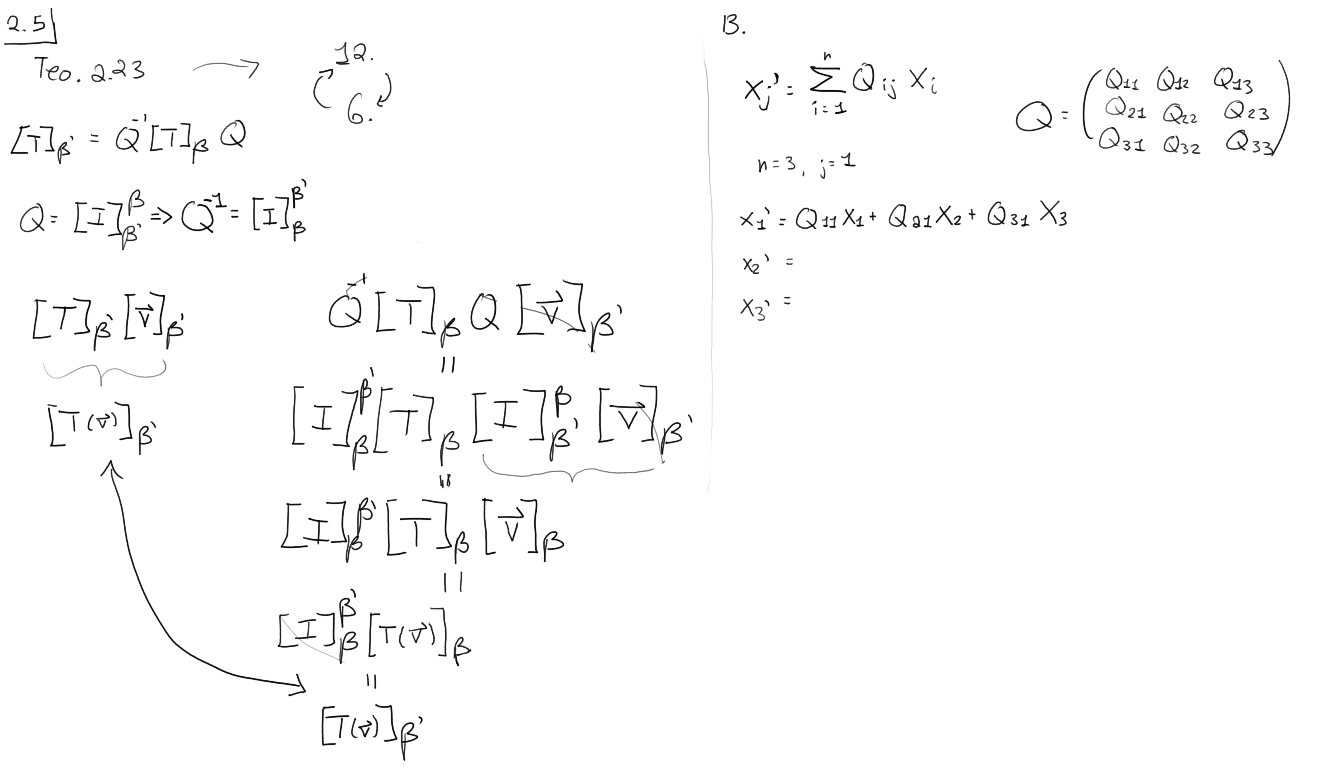 2.5
Teo. 2.23 → 12.
6.
[T]_β' = Q⁻¹[T]_β Q
Q = [I]_β'^β ⇒ Q⁻¹ = [I]_β^β'
[T]_β' [v⃗]_β'
[T(v⃗)]_β'
Q⁻¹ [T]_β Q [v⃗]_β'
=
[I]_β^β' [T]_β [I]_β'^β [v⃗]_β'
=
[I]_β^β' [T]_β [v⃗]_β
=
[I]_β^β' [T(v⃗)]_β
=
[T(v⃗)]_β'
13.
x_j' = ∑_{i=1}^{n} Q_ij x_i
Q = ( Q11 Q12 Q13
Q21 Q22 Q23
Q31 Q32 Q33 )
n=3, j=1
x1' = Q11 x1 + Q21 x2 + Q31 x3
x2' =
x3' =